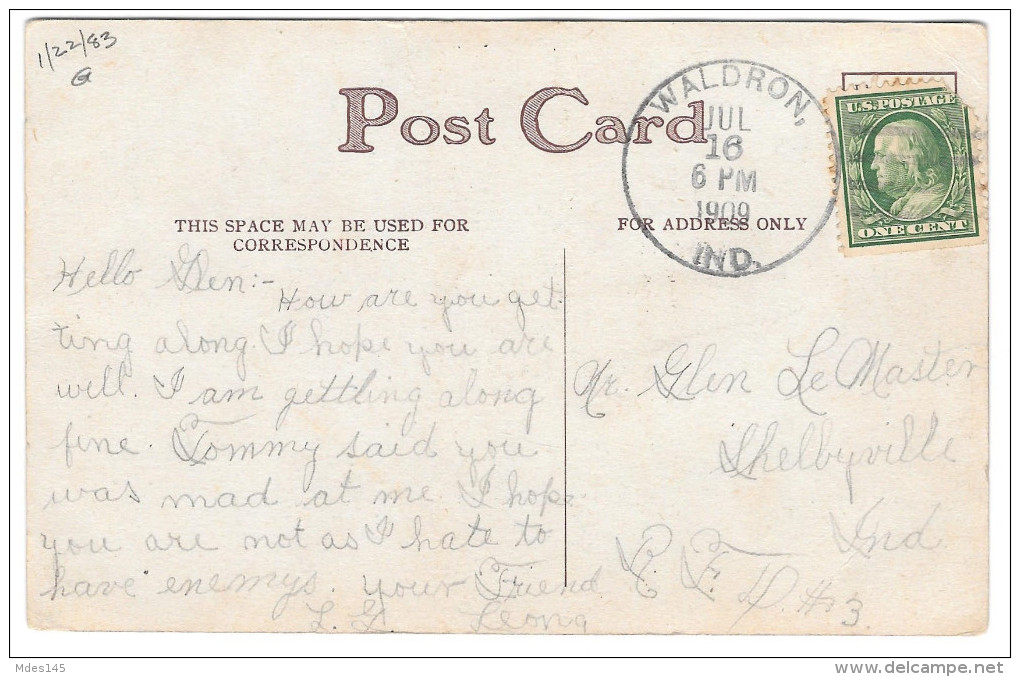 1/22/83
G
Post Card
WALDRON,
JUL
16
6 PM
1909
IND.
U.S. POSTAGE
ONE CENT
THIS SPACE MAY BE USED FOR
CORRESPONDENCE
FOR ADDRESS ONLY
Hello Glen:-
How are you get-
ting along. I hope you are
well. I am gettling along
fine. Tommy said you
was mad at me I hope
you are not as I hate to
have enemys. your Friend
L. G. Leona
Mr. Glen Le Master
Shelbyville
Ind
R. F. D. #3.
Mdes145
delcampe.net